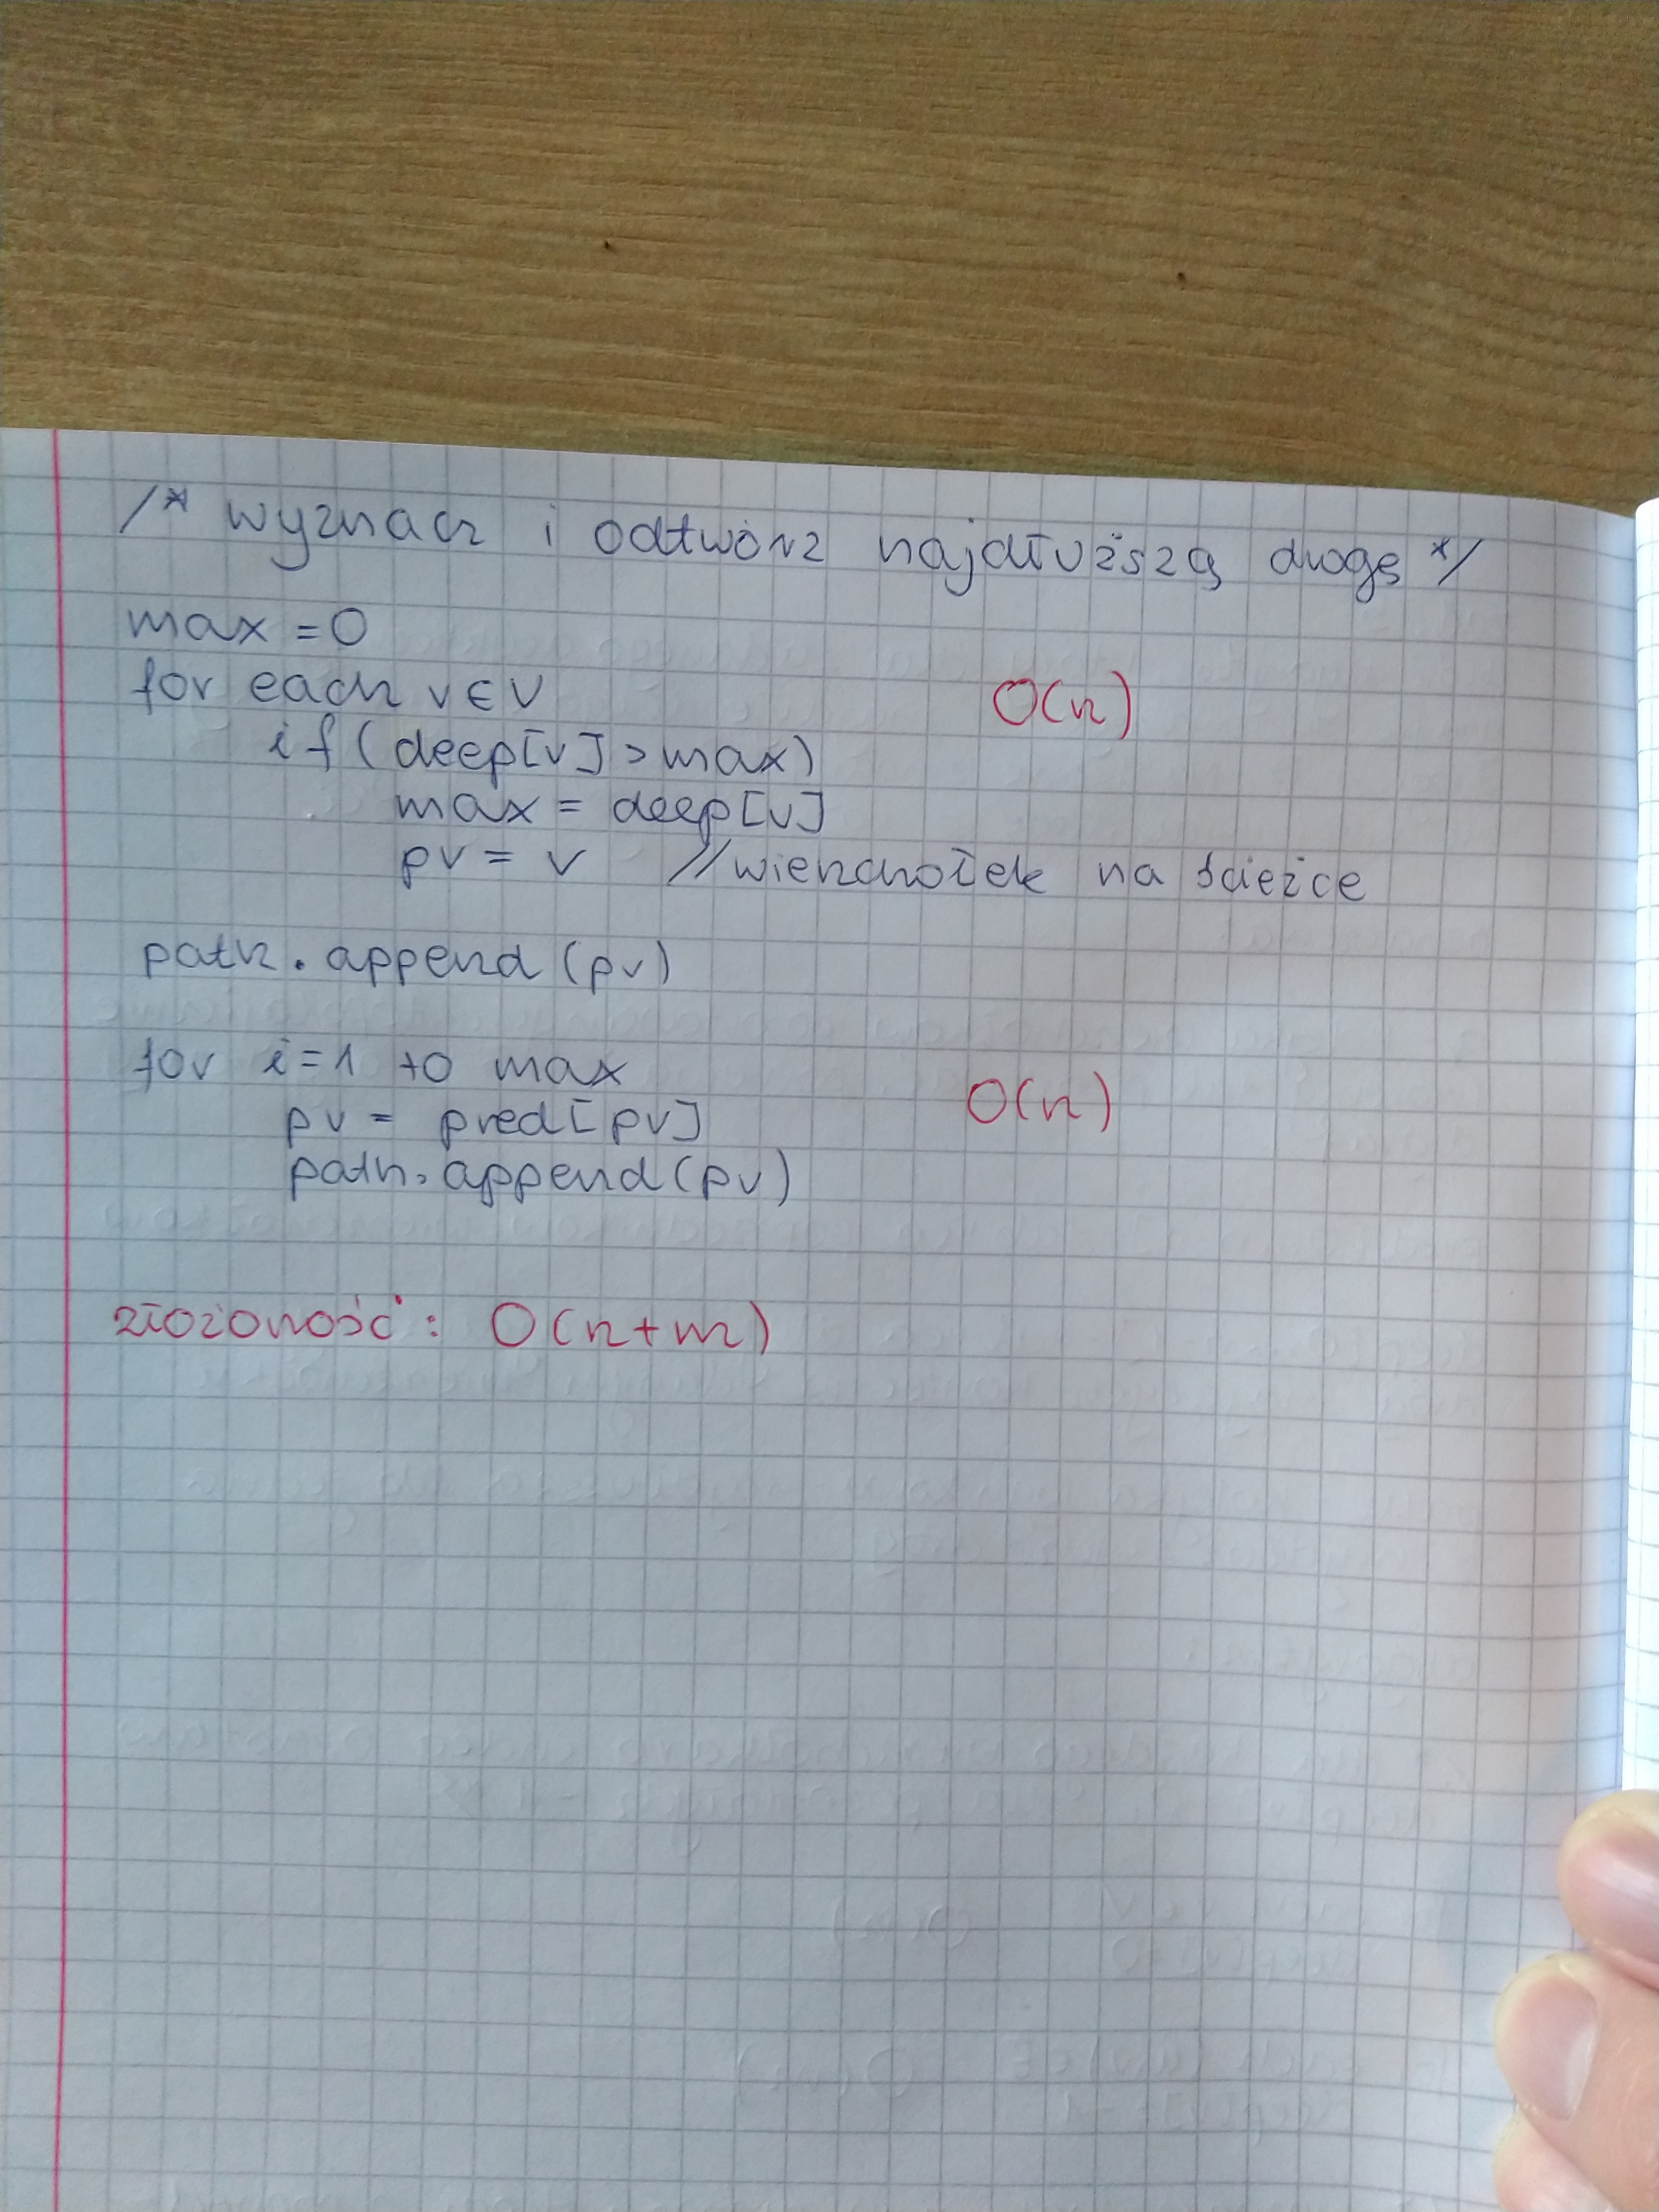 /* wyznacz i odtwórz najdłuższą drogę */
max = 0
for each v ∈ V O(n)
if (deep[v] > max)
max = deep[v]
pv = v //wierzchołek na ścieżce
path.append(pv)
for i = 1 to max
pv = pred[pv] O(n)
path.append(pv)
złożoność: O(n+m)